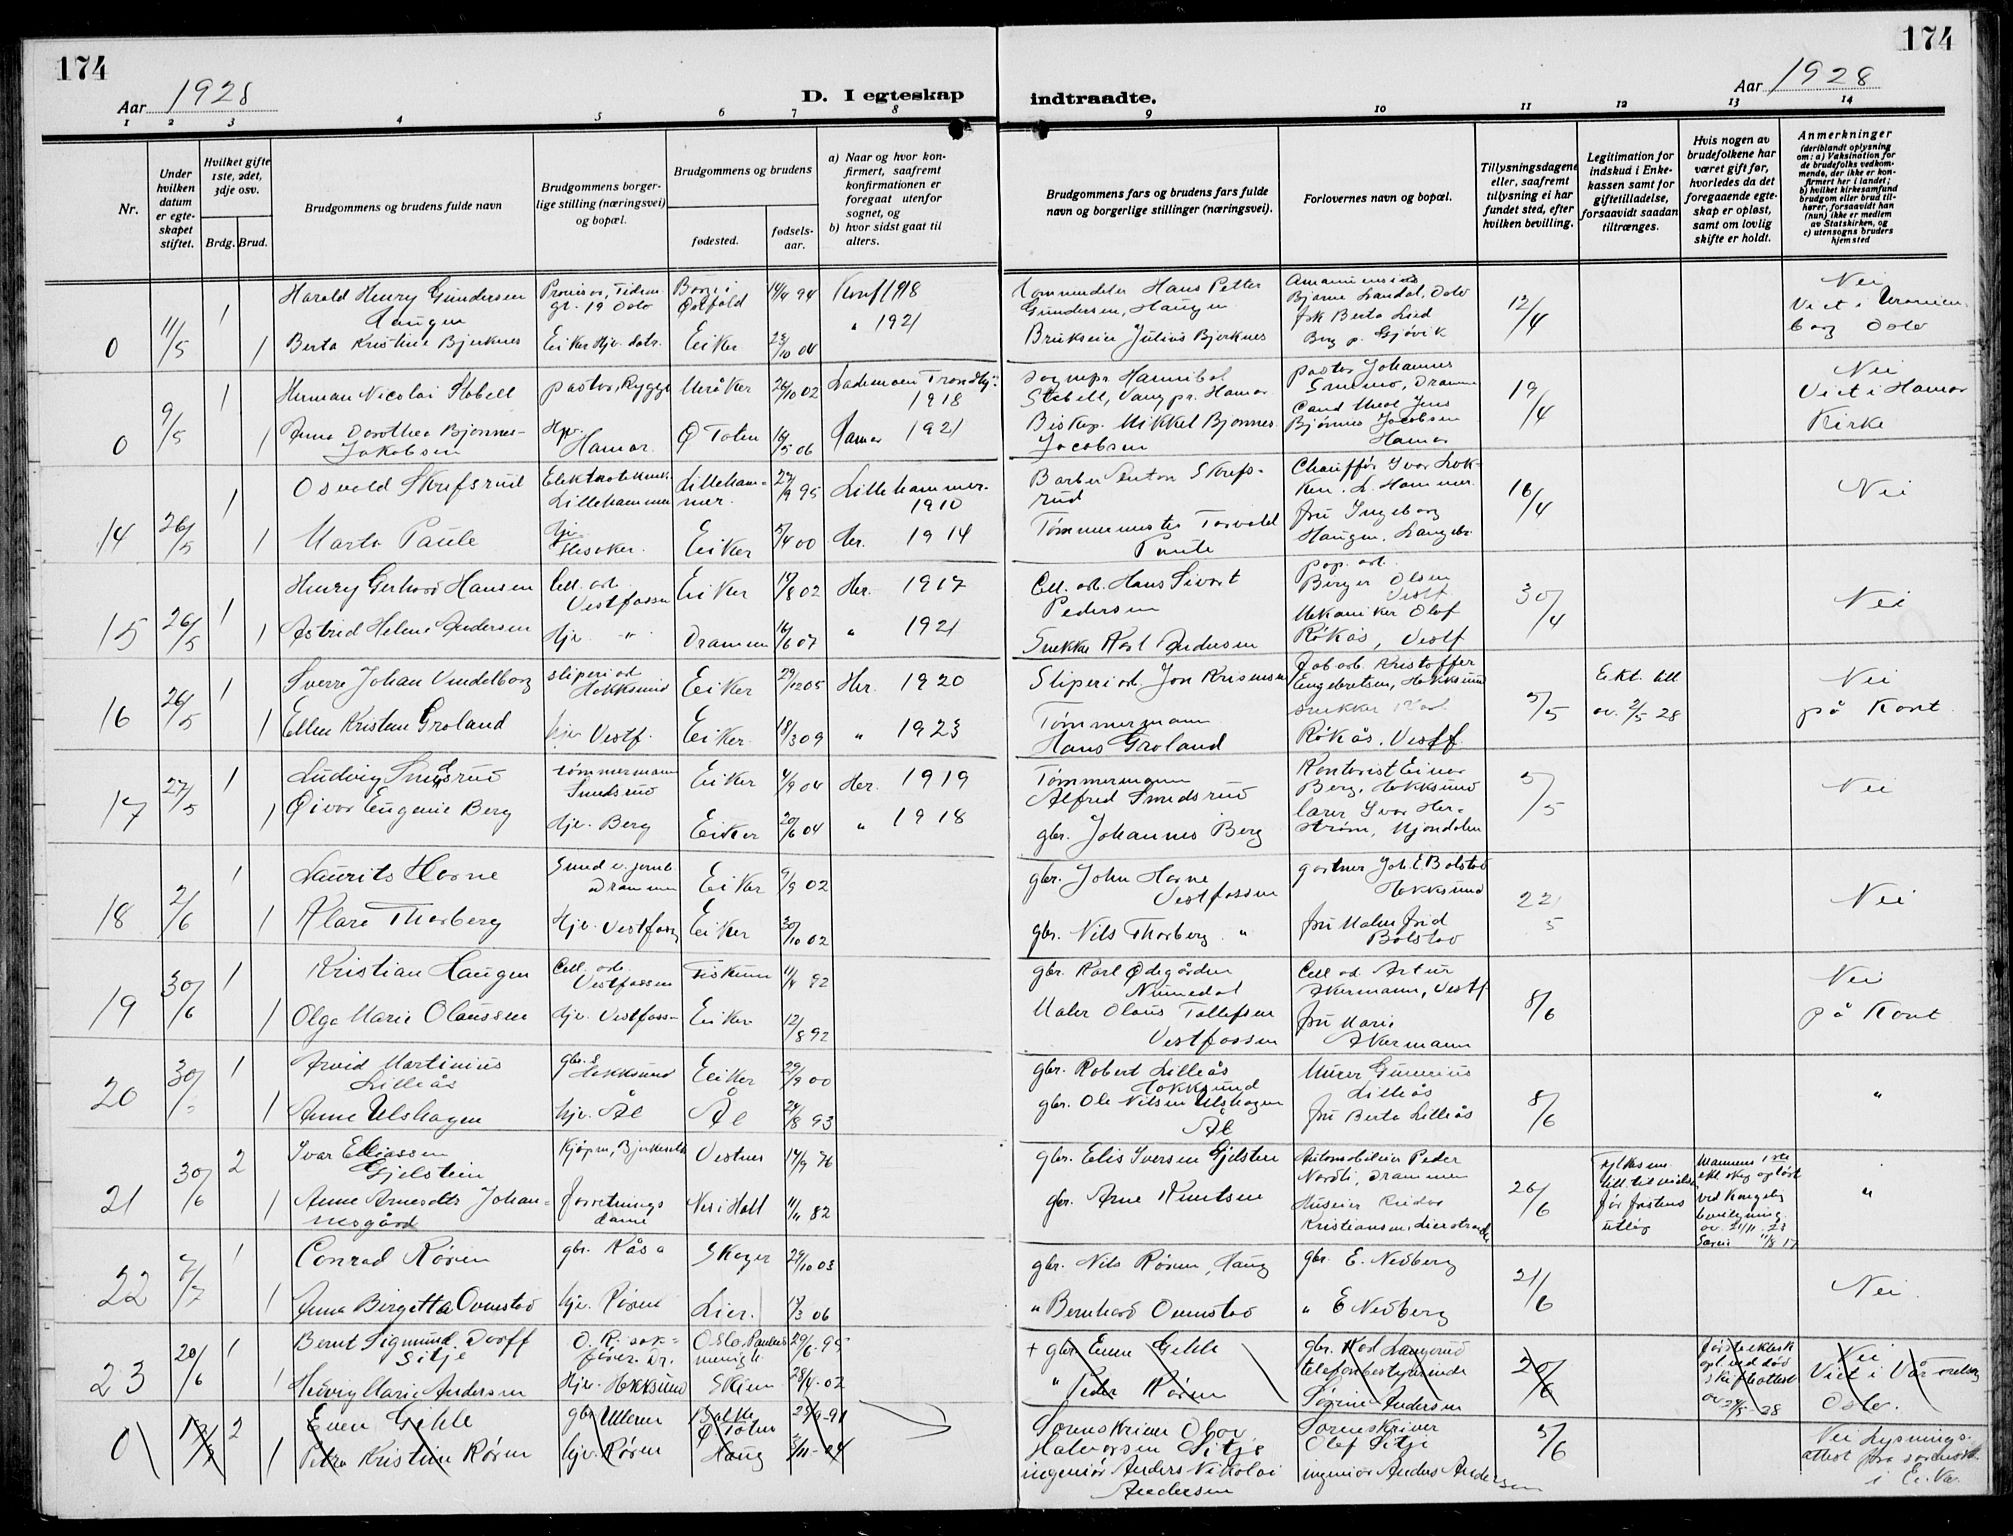 174
Aar 1928
D. I egteskap
1 2 3 4 5 6 7 8
Nr.
Under hvilken datum er egteskapet stiftet.
Hvilket gifte 1ste, 2det, 3dje osv.
Brdg. Brud.
Brudgommens og brudens fulde navn
Brudgommens borgerlige stilling (næringsvei) og bopæl.
Brudgommens og brudens
fødested.
fødselsaar.
a) Naar og hvor konfirmert, saafremt konfirmationen er foregaat utenfor sognet, og
b) hvor sidst gaat til alters.
0 11/5 1 Harald Henry Gundersen Haugen Provisor, Oslo Borge i Østfold 94 Konf 1918
1 Berta Kristine Bjerknes Eiker Hjv. datr. Eiker 23/10 04 " 1921
0 9/5 1 Herman Nicolai Stabell pastor, Rygge Meråker 26/10 02 Lademoen Trondhj. 1918
1 Anna Dorothea Bjønnes-Jakobsen Hjv. Hamar Ø Toten 16/5 06 Hamar 1921
14 26/5 1 Osvald Skrefsrud Lillehammer Lillehammer. 27/9 95 Lillehammer. 1910
1 Marta Paule Hjv. Eiker 5/4 00 Her. 1914
15 26/5 1 Henry Gerhard Hansen Cell. arb. Vestfossen Eiker 19/8 02 Her. 1917
1 Astrid Helene Andersen Hjv. " Drammen 16/6 07 " 1921
16 26/5 1 Sverre Johan Vindelborg sliperiarb Hokksund Eiker 29/12 05 Her. 1920
1 Ellen Kristine Groland hjv Vestf. Eiker 18/3 09 " 1923
17 27/5 1 Ludvig Smedsrud tømmermann Smedsrud Eiker 4/9 04 Her. 1919
1 Øivor Eugenie Berg Hjv. Berg Eiker 20/6 04 " 1918
18 2/6 1 Laurits Horne Drammen Eiker 9/9 02
1 Klara Thorberg Hjv. Vestfoss Eiker 30/10 02
19 30/6 1 Kristian Haugen Cell. arb. Vestfossen Fiskum 11/4 92
1 Olga Marie Olaussen Hjv. Vestfoss Eiker 12/8 92
20 30/ 1 Arvid Martinius Lilleås gbr. s Hokksund Eiker 29/9 00
1 Anne Ulshagen hjv. Ål Ål 24/8 93
21 30/6 2 Ivar Eliassen Gjelstein Kjøpm, Vestnes 14/9 76
1 Anne Arnesdtr Johannesgård forretningsdame Nes i Hall 11/11 82
22 7/7 1 Conrad Røren gbr. Kåsa Skoger 29/10 03
1 Anna Birgetta Ovnstad hjv. Røren Lier. 06
23 20/6 1 Bernt Sigmund Dorff Sitje O. R. sakfører. Dr. Oslo, Paulus menigh. 29/6.95
1 Hedvig Marie Andersen Hjv. Hokksund Skien 28/4.02
0 2 Even Gihle gbr Ullern Balke Ø Toten 91
1 Petra Kristine Røren hjv. Røren Haug
174
Aar 1928
indtraadte.
9 10 11 12 13 14
Brudgommens fars og brudens fars fulde navn og borgerlige stillinger (næringsvei).
Forlovernes navn og bopæl.
Tillysningsdagene eller, saafremt tillysning ei har fundet sted, efter hvilken bevilling.
Legitimation for indskud i Enkekassen samt for giftetilladelse, forsaavidt saadan tiltrænges.
Hvis nogen av brudefolkene har været gift før, hvorledes da det foregaaende egteskap er opløst, samt om lovlig skifte er holdt.
Anmerkninger
(deriblandt oplysning om: a) Vaksination for de brudefolks vedkommende, der ikke er konfirmert her i landet; b) hvilket kirkesamfund brudgom eller brud tilhører, forsaavidt han (hun) ikke er medlem av Statskirken, og c) utensogns bruders hjemsted
Hans Petter Gundersen, Haugen Bjarne Landal, Oslo 12/4 Nei
Brukseier Julius Bjerknes frk Berta Lied Berg p. Gjøvik Viet i Uranienborg Oslo
sognepr Hannibal Stabell, Vang pr. Hamar pastor Johannes Drammen 19/4 Nei Viet i Hamar Kirke
Biskop Mikkel Bjønnes-Jacobsen Cand theol Jens Bjønnes Jacobsen Hamar
Barber Anton Skrefsrud Chauffør Ivar Løkken. L. Hammer. 16/4 Nei
Tømmermester Torvald Paule fru Ingeborg Haugen,
Cell. arb. Hans Sivert Pedersen pap. arb. Birger Olsen Vestf 30/4 Nei
Snekker Karl Andersen Mekaniker Olof Røkås, Vestf
Sliperiarb. Jon Kristensen Fab arb. Kristoffer Engebretsen, Hokksund 5/5 Nei på Kont.
Tømmermann Hans Groland snekker Karl Røkås. Vestf. av. 2/5 28
Tømmermann Alfred Smedsrud Kontorist Einar Berg, Hokksund 5/5 Nei
gbr. Johannes Berg lærer Ivar Herstrøm, Mjøndalen
gbr. John Horne Vestfossen gartner Joh. E. Bolstad Hokksund 22/5 Nei
gbr. Nils Thorberg " fru Malenfrid Bolstad
gbr. Karl Ødegården Numedal Cell arb. Artur Akermann, Vestf 8/6 Nei på Kont
Maler Olaus Tollefsen Vestfossen fru Marie Akermann
gbr. Robert Lilleås Hokksund Murer Gunerius Lilleås 8/6 "
gbr. Ole Nilsen Ulshagen Ål fru Berta Lilleås
gbr. Elis Iversen Gjelsten Automobileier Peder Nordli, Drammen 26/6 "
gbr. Arne Knutsen Huseier Reidar Kristiansen, Lierstranda
Mannens 1ste ekt.skap opløst ved Kongelig bevilgning av 21/11.23
gbr. Nils Røren, Haug gbr. E. Nedberg 21/6 Nei
" Bernhard Ovnstad " E Nedberg
+ gbr Even Gihle gbr. Karl Langerud 20/6 Nei Viet i Vår Oslo.
" Peder Røren telefonbestyrerinde Sørine Andersen
Sorenskriver Olav Halvorsen Sitje Sorenskriver Olaf Sitje 5/6 Nei Lysningsattest fra sorenskr. i Eiker
ingeniør Anders Nikolai Andersen ingeniør Anders Andersen